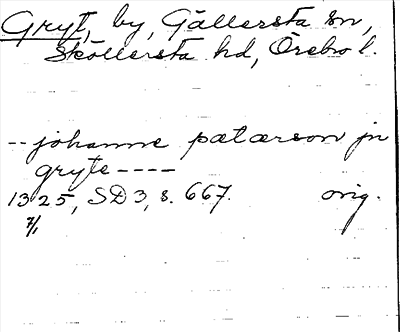 Gryt, by, Gällersta sn,
Sköllersta hd, Örebro l.
-- johanne pætærson jn
gryte ----
1325, SD 3, s. 667. orig.
7/1